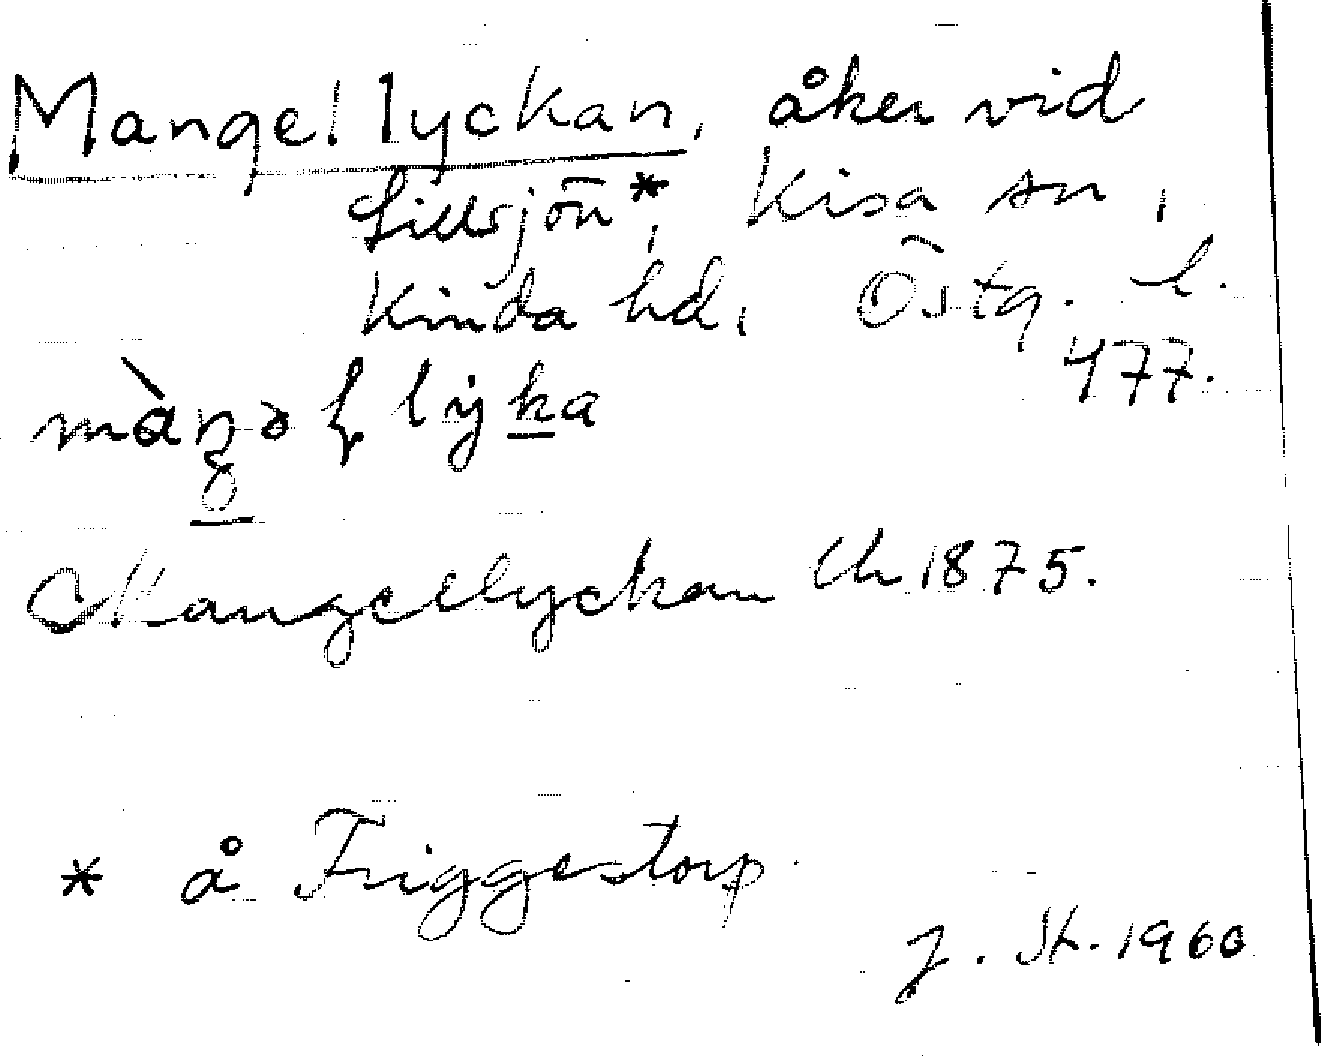 Mangellyckan, åker vid
Lillsjön*, Kisa sn,
Kinda hd, Östg. l.
477.
lyka
Mangellyckan Uk 1875.
* å Friggestorp.
J. St. 1960